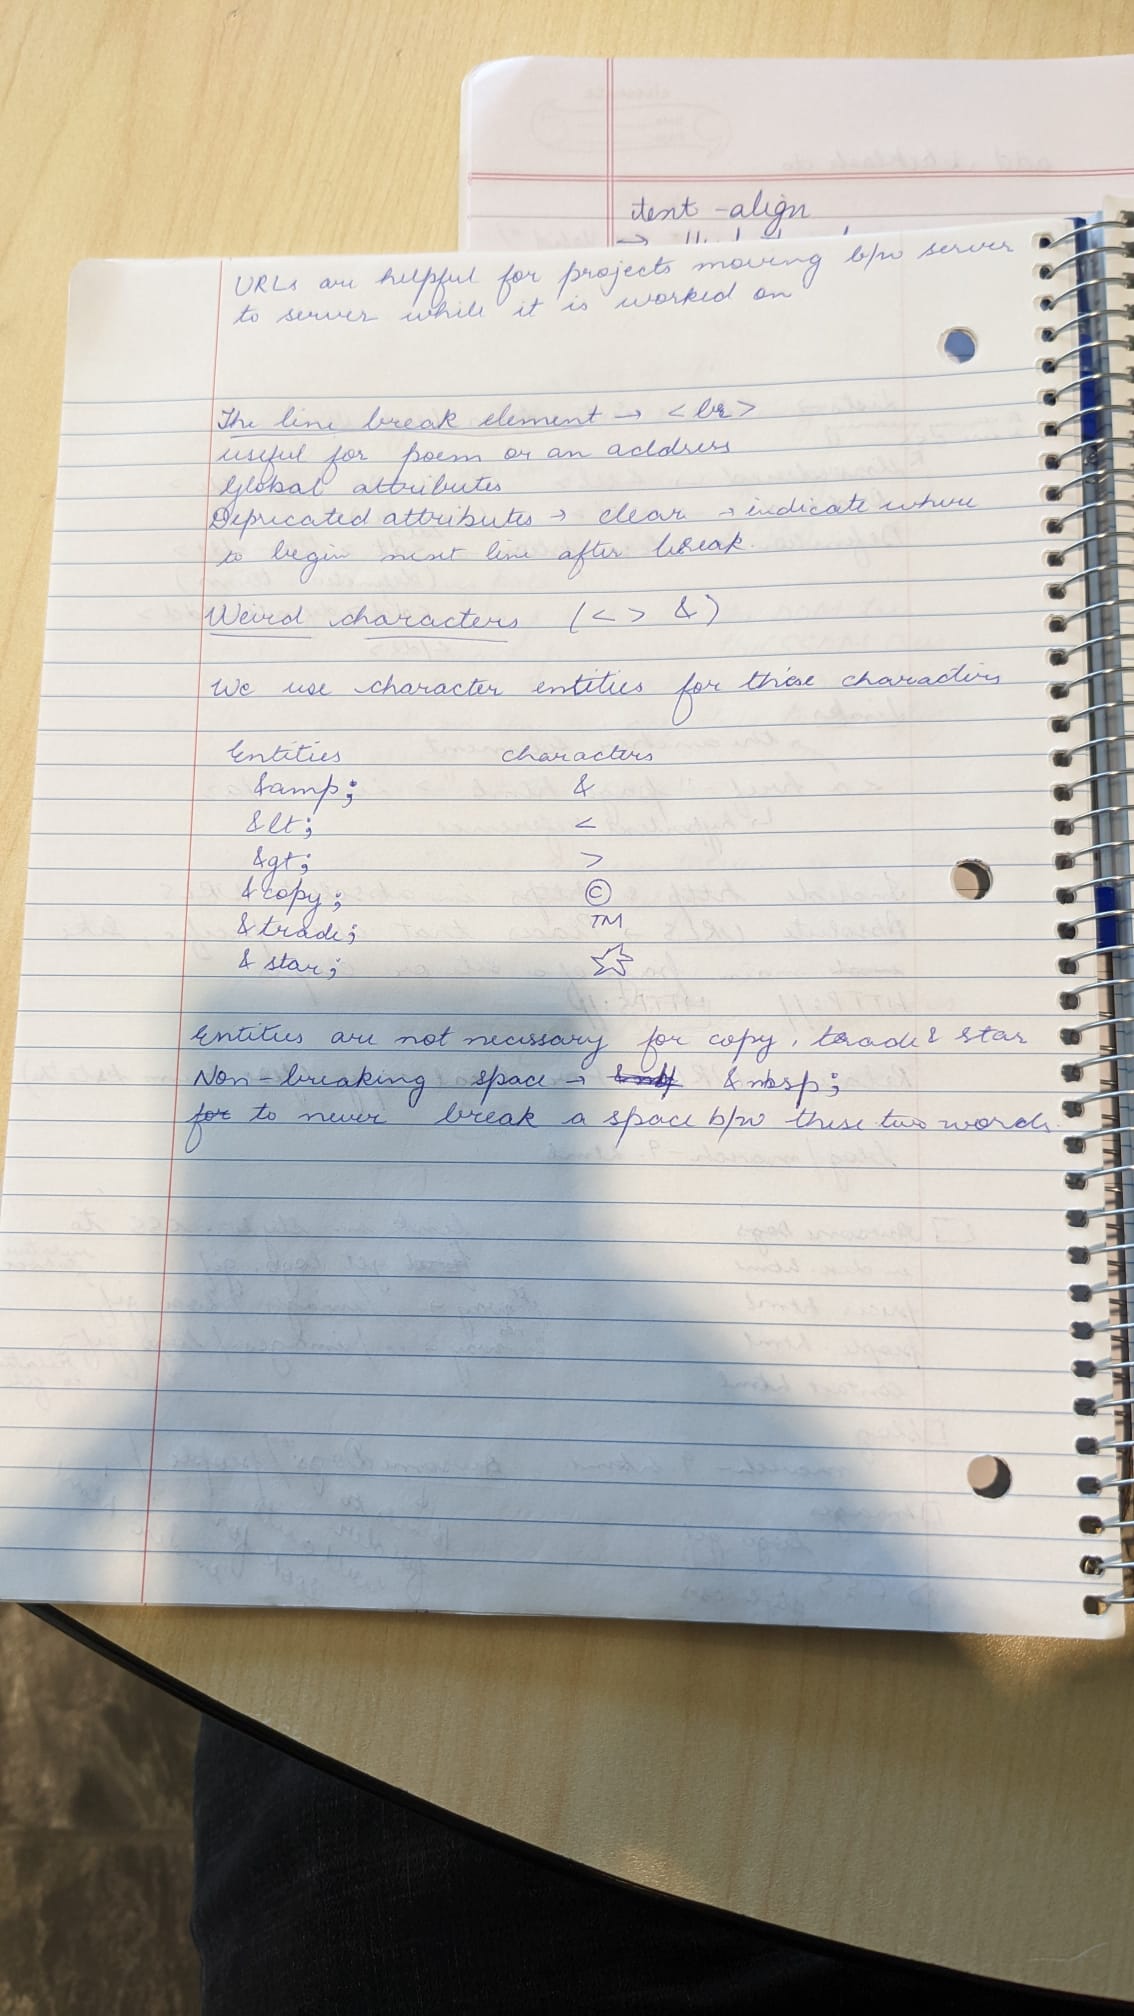 text-align
URLs are helpful for projects moving b/w server
to server while it is worked on
The line break element → <br>
useful for poem or an address
Global attributes
Depricated attributes → clear → indicate where
to begin next line after break.
Weird characters (< > &)
We use character entities for these characters
Entities characters
&amp; &
&lt; <
&gt; >
&copy; ©
&trade; TM
&star; ☆
Entities are not necessary for copy, trade & star
Non-breaking space → &nbsp;
for to never break a space b/w these two words.